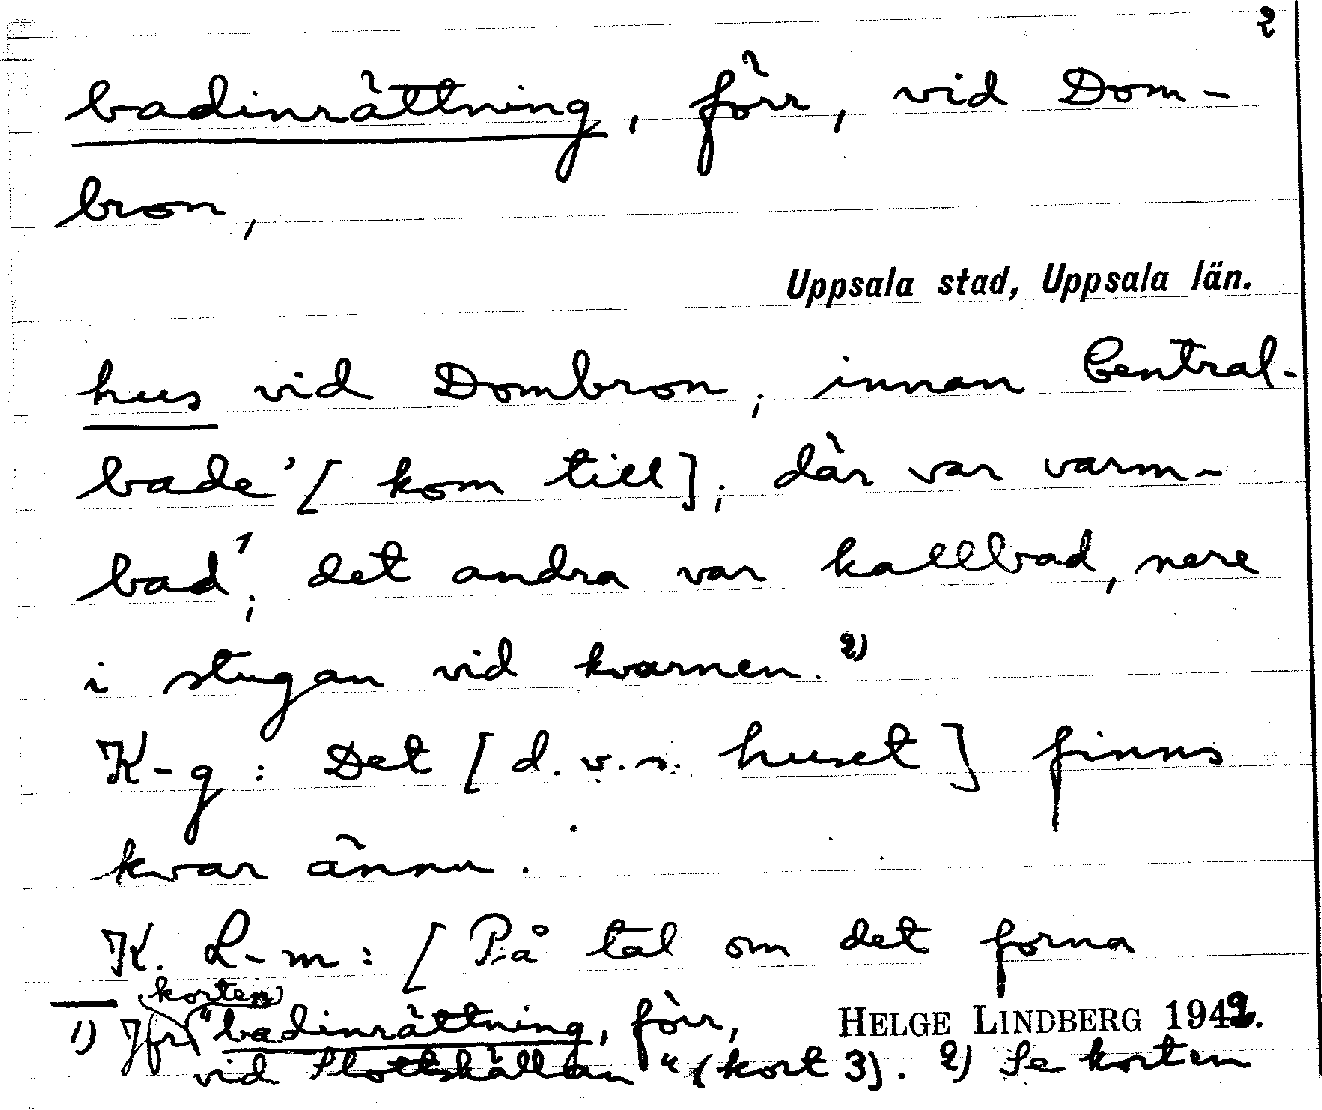 2
badinrättning, förr, vid Dom-
bron,
Uppsala stad, Uppsala län.
hus vid Dombron, innan Central-
bade' [kom till]; där var varm-
bad1; det andra var kallbad, nere
i stugan vid kvarnen.2)
K-g: Det [d.v.s. huset] finns
kvar ännu.
K. L-m: [På tal om det forna
(korten)
1) Jfr "badinrättning, förr, HELGE LINDBERG 1942.
vid Slottskällan" (kort 3). 2) Se korten